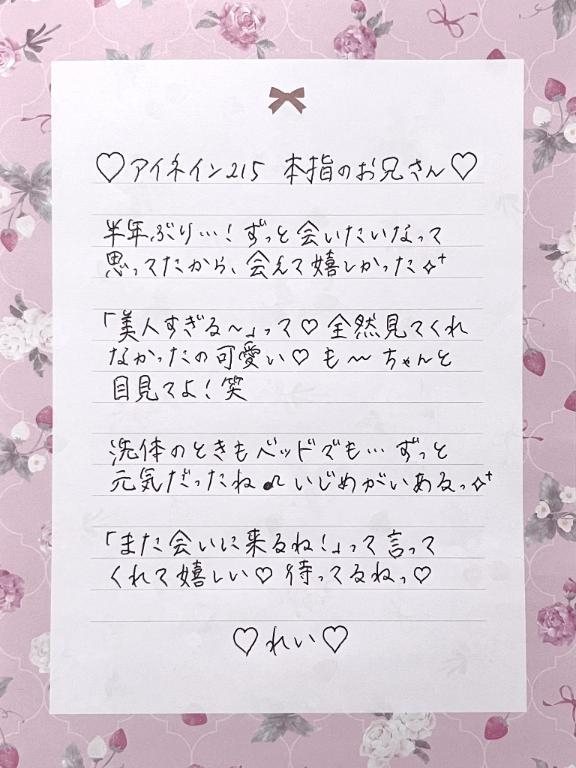 ♡アイネイン215 本指のお兄さん♡
半年ぶり…！ずっと会いたいなって
思ってたから、会えて嬉しかった✧⁺
「美人すぎる〜」って♡全然見てくれ
なかったの可愛い♡も〜ちゃんと
目見てよ！笑
洗体のときもベッドでも…ずっと
元気だったね♫いじめがいあるっ✧⁺
「また会いに来るね！」って言って
くれて嬉しい♡待ってるねっ♡
♡れい♡